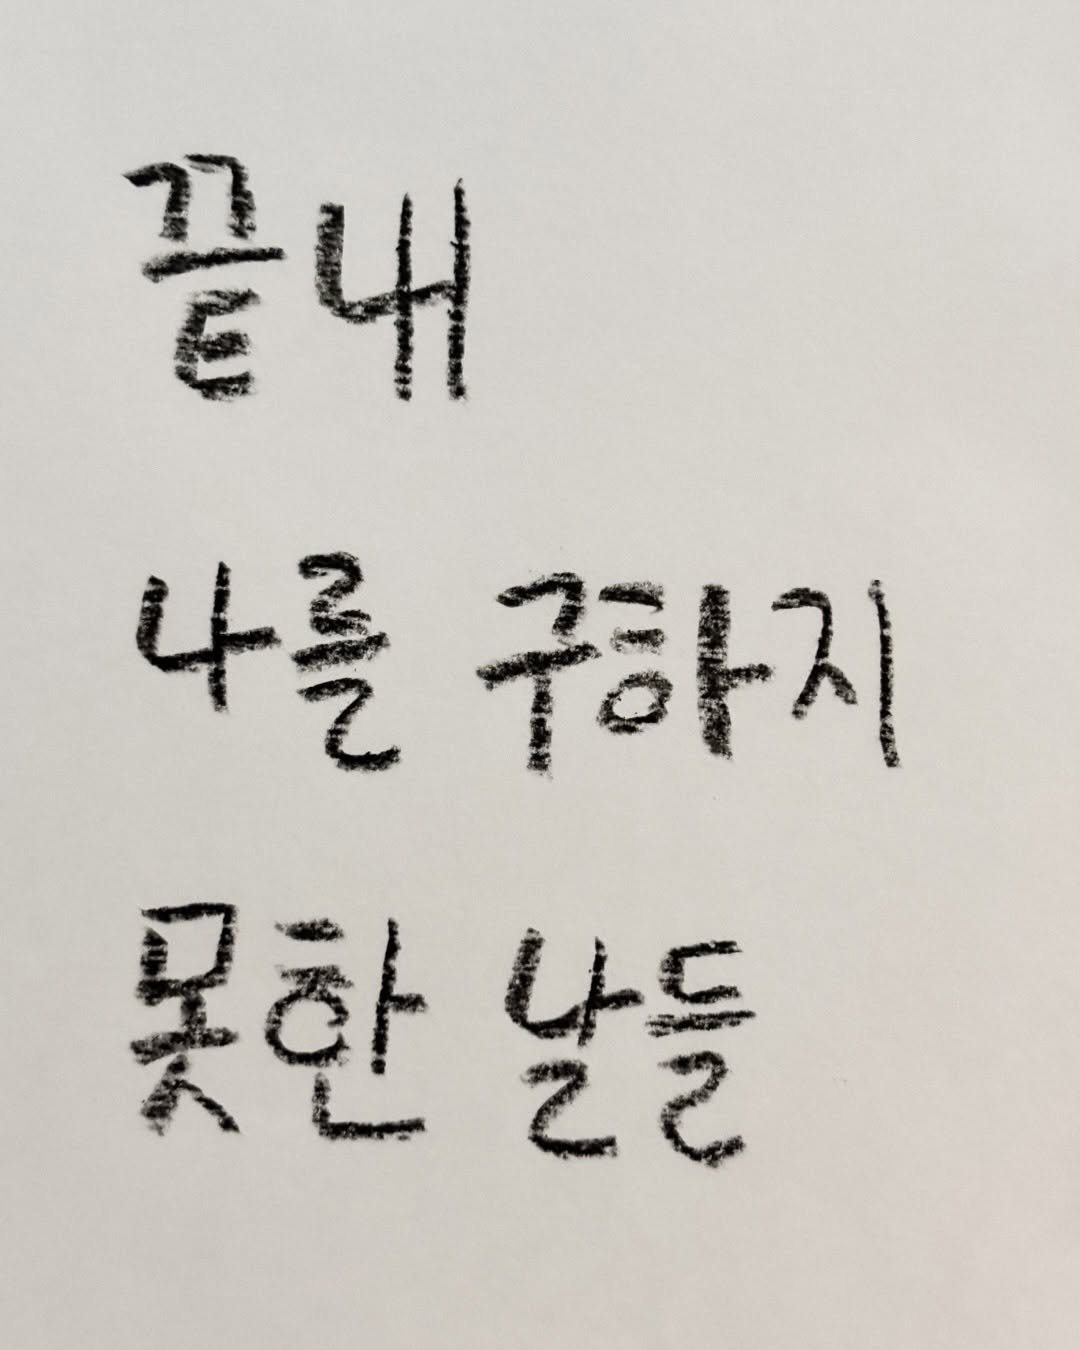 끝내
나를 구하지
못한 날들